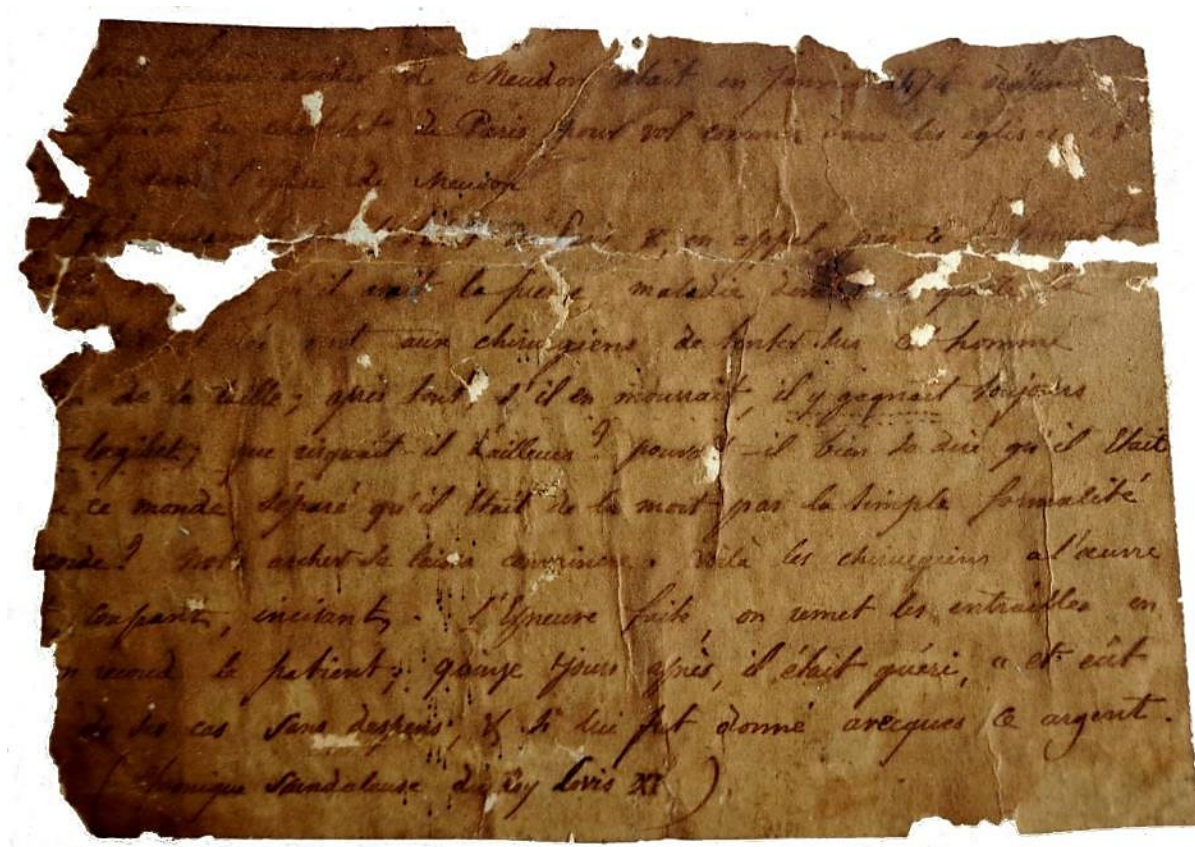 archer de Meudon était en Janvier 1474 détenu
de Paris, pour vol commis dans les églises et
dans l'église de Meudon
en appel, par le
il avait la pierre, maladie dont
aux chirurgiens de tenter sur cet homme
de la taille; après tout, s'il en mourrait, il y gagnait toujours
que risquait-il d'ailleurs? pouvait-il bien se dire qu'il était
ce monde séparé qu'il était de la mort par la simple formalité
corde? notre archer se laissa convaincre. Voilà les chirurgiens a l'œuvre
coupant, incisant. l'Epreuve faite, on remet les entrailles en
on recoud le patient; quinze jours après, il était guéri, « et eût
de ses cas sans despens, & si lui fut donné avecques ce argent.
(Chronique Scandaleuse du Roy Lovis XI)